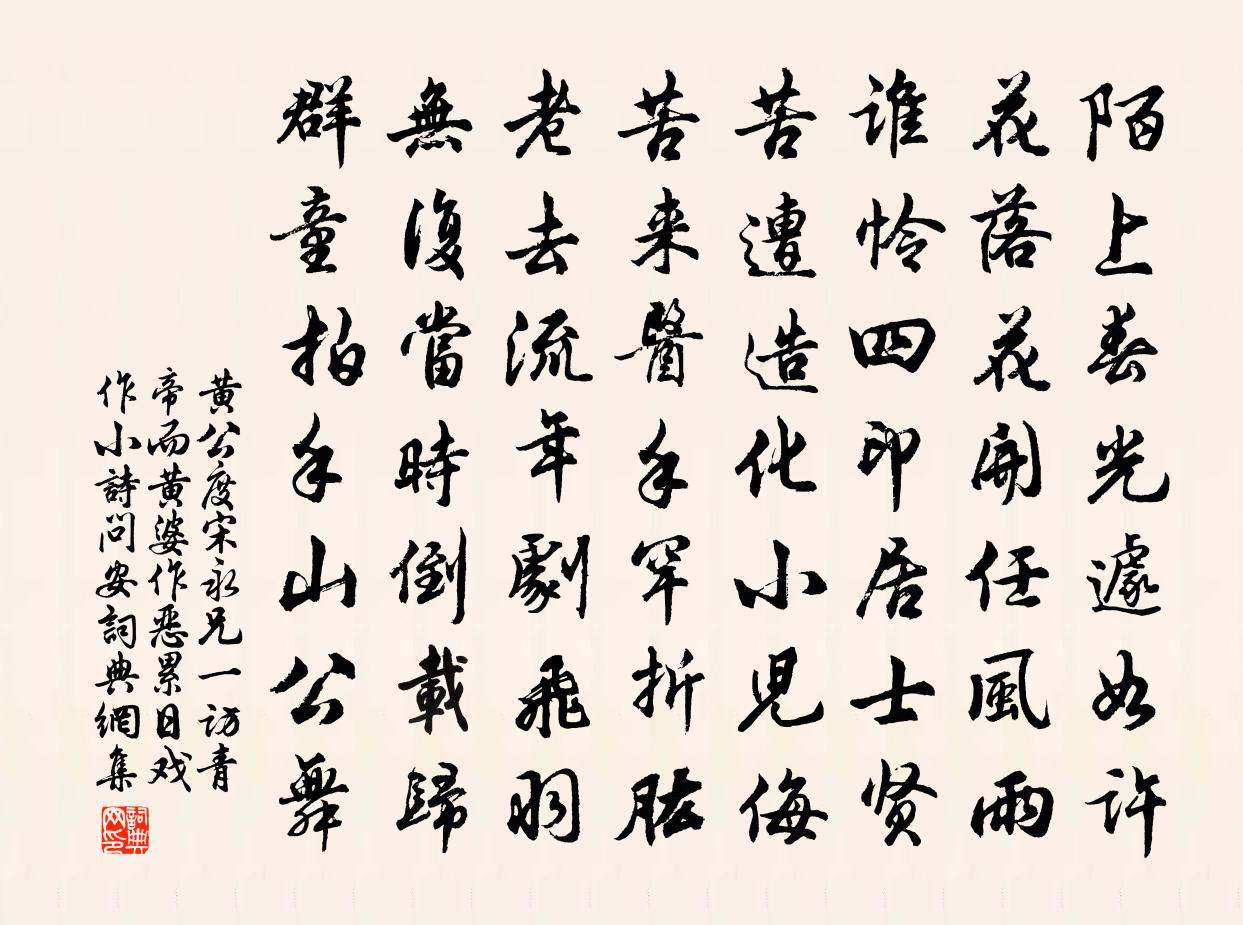 陌上春光遽如许
花落花開任風雨
谁怜四印居士贤
苦遭造化小児侮
苦来醫手罕折肱
老去流年劇飛羽
無復當時倒載歸
群童拍手山公舞
黄公度宋永兄一访青
帝而黄婆作恶累日戏
作小詩問安詞典網集
詞典
网印